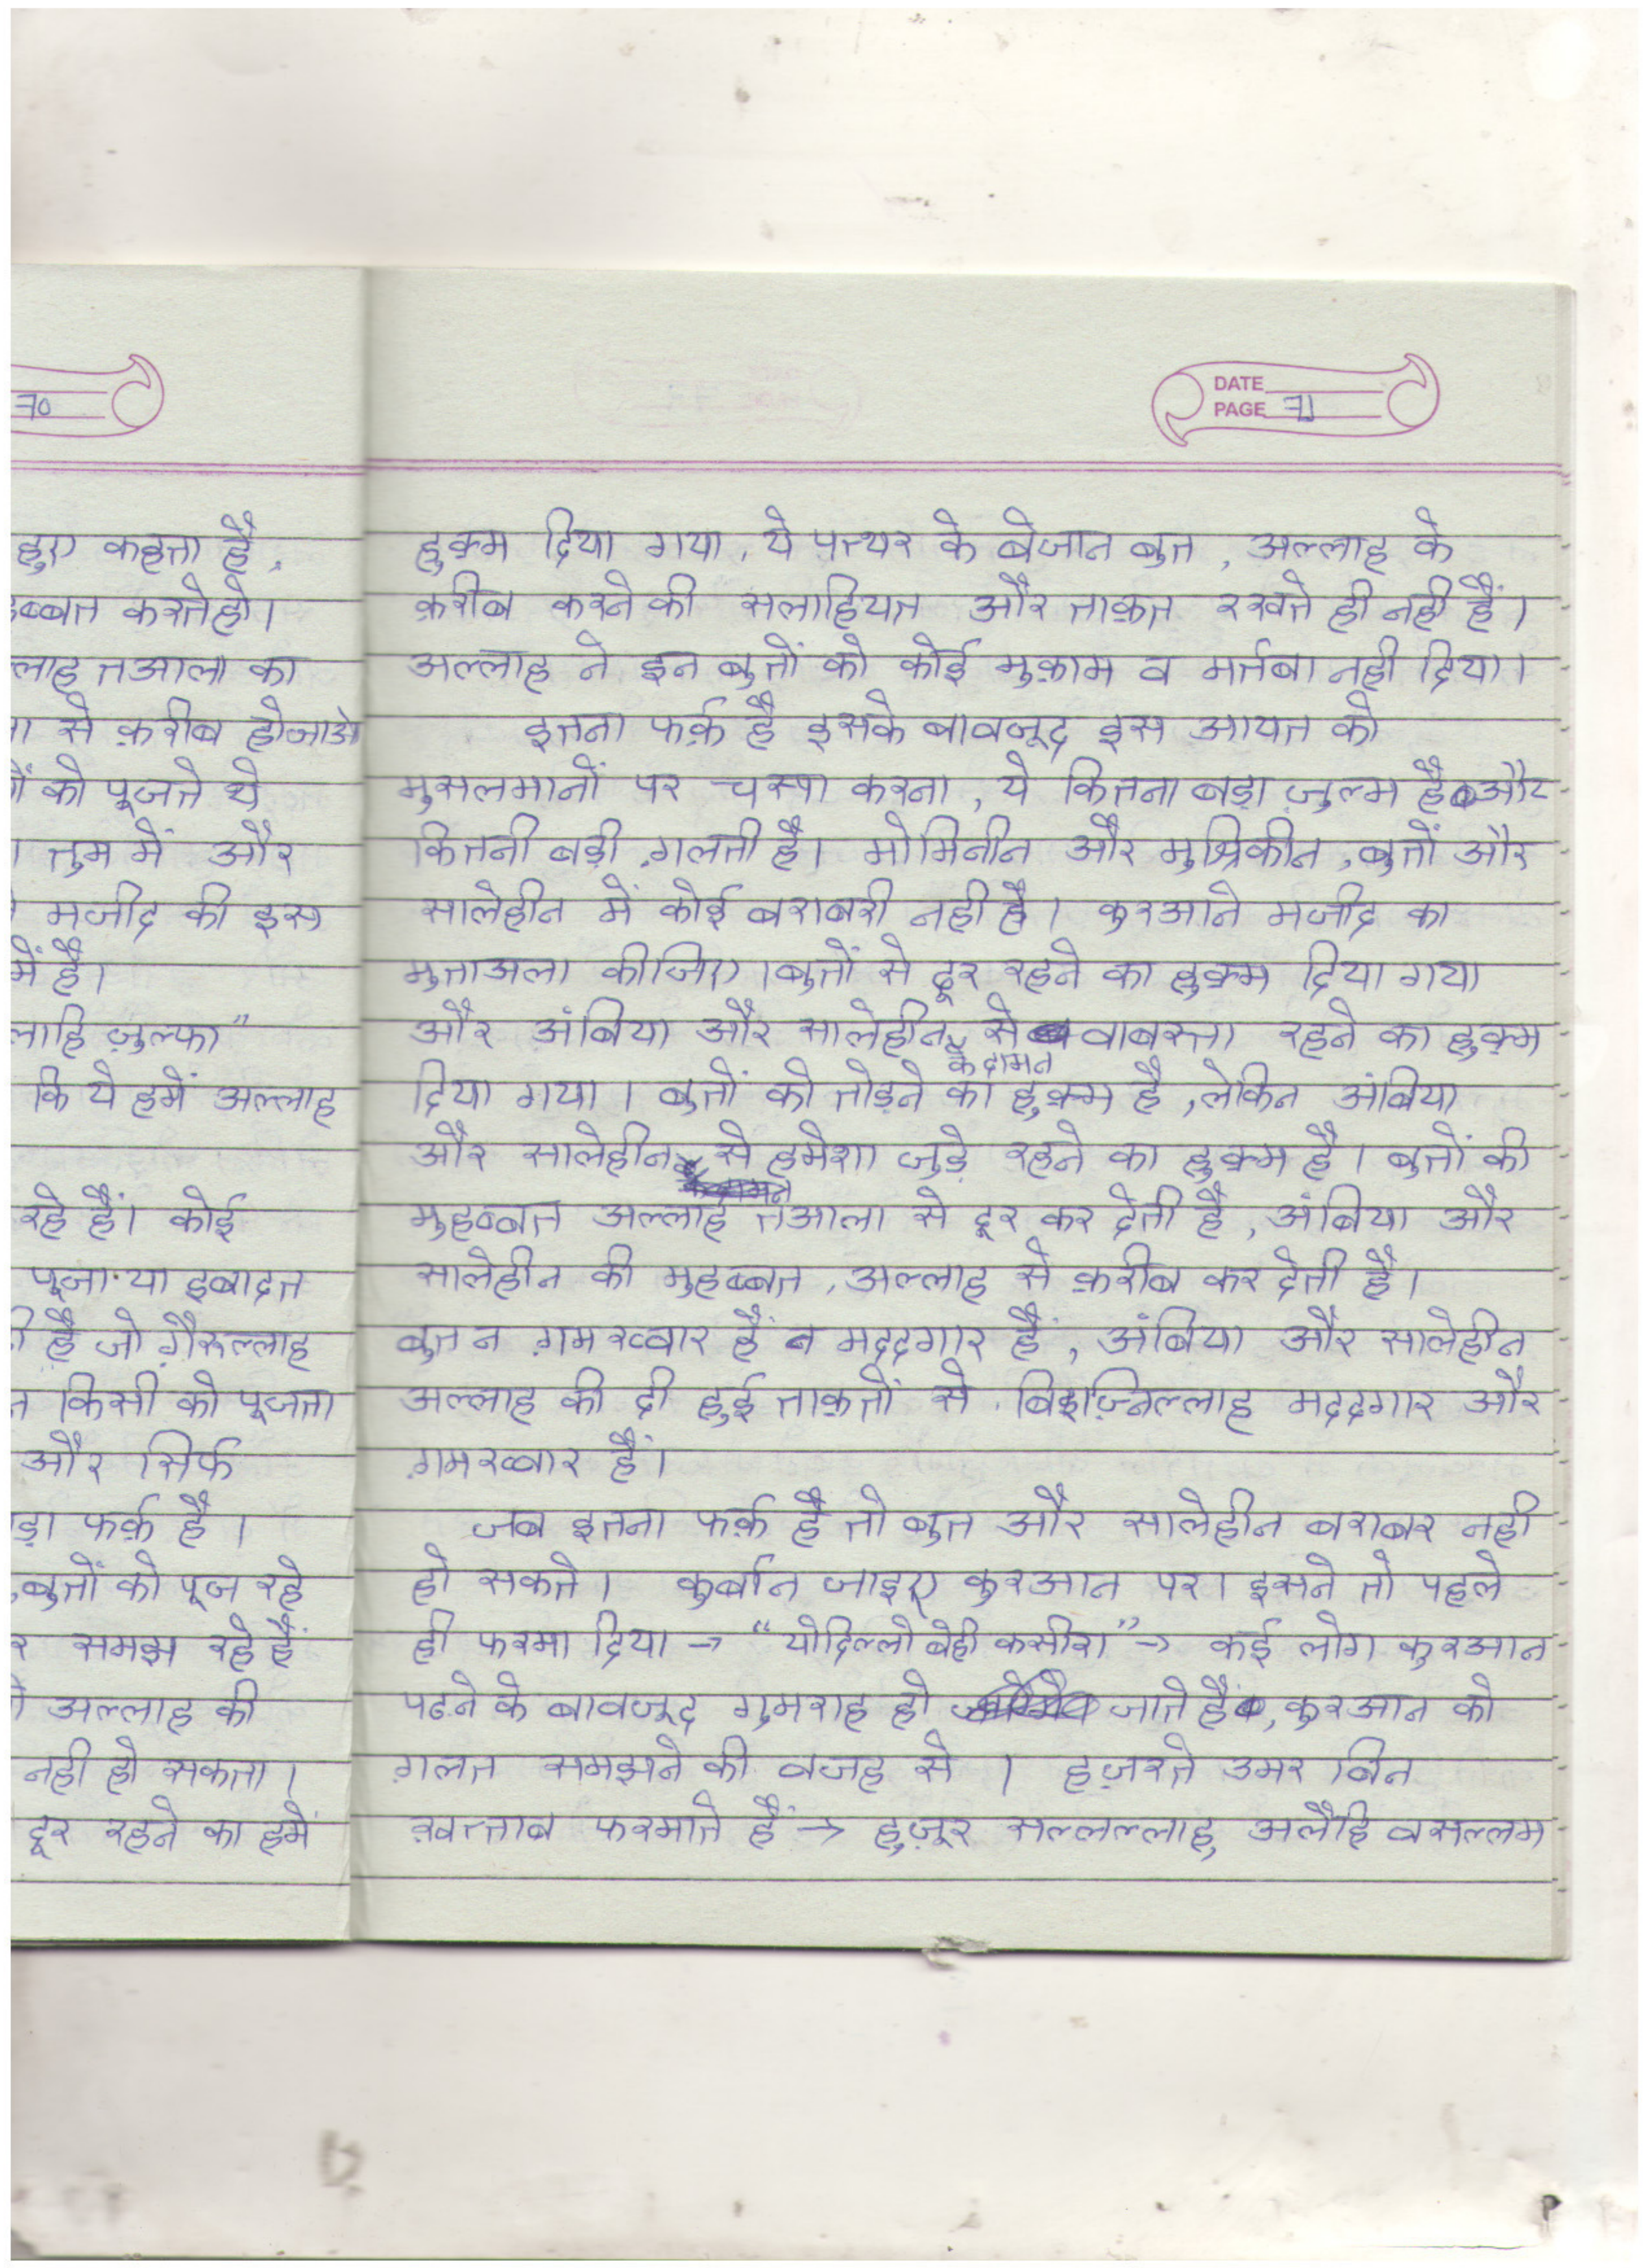 70
हुए कहता है,
ब्बत करतेहो।
लाह तआला का
से क़रीब होजाओ
को पूजते थे
तुम में और
मजीद की इस
में है।
लाहि ज़ुल्फा"
कि ये हमें अल्लाह
रहे हैं। कोई
पूजा या इबादत
है जो ग़ैरुल्लाह
किसी को पूजता
और सिर्फ
ड़ा फर्क़ है।
,बुतों को पूज रहे
समझ रहे हैं
अल्लाह की
नही हो सकता।
दूर रहने का हमें
DATE
PAGE 71
हुक्म दिया गया, ये पत्थर के बेजान बुत, अल्लाह के
क़रीब करने की सलाहियत और ताक़त रखते ही नही हैं।
अल्लाह ने इन बुतों को कोई मुक़ाम व मर्तबा नही दिया।
इतना फर्क़ है इसके बावजूद इस आयत को
मुसलमानों पर चस्पा करना, ये कितना बड़ा ज़ुल्म है और
कितनी बड़ी ग़लती है। मोमिनीन और मुश्रिकीन, बुतों और
सालेहीन में कोई बराबरी नही है। कुरआने मजीद का
मुताअला कीजिए। बुतों से दूर रहने का हुक्म दिया गया
और अंबिया और सालेहीन के दामन से वाबस्ता रहने का हुक्म
दिया गया। बुतों को तोड़ने का हुक्म है, लेकिन अंबिया
और सालेहीन से हमेशा जुड़े रहने का हुक्म है। बुतों की
मुहब्बत अल्लाह तआला से दूर कर देती है, अंबिया और
सालेहीन की मुहब्बत, अल्लाह से क़रीब कर देती है।
बुत न ग़मख्वार हैं न मददगार हैं, अंबिया और सालेहीन
अल्लाह की दी हुई ताक़तों से, बिइज़्निल्लाह मददगार और
ग़मख्वार हैं।
जब इतना फर्क़ है तो बुत और सालेहीन बराबर नही
हो सकते। कुर्बान जाइए कुरआन पर। इसने तो पहले
ही फरमा दिया → "योदिल्लो बेही कसीरा" → कई लोग कुरआन
पढने के बावजूद गुमराह हो जाते हैं, कुरआन को
ग़लत समझने की वजह से। हज़रते उमर बिन
ख़त्ताब फरमाते हैं → हुज़ूर सल्लल्लाहु अलैहि वसल्लम